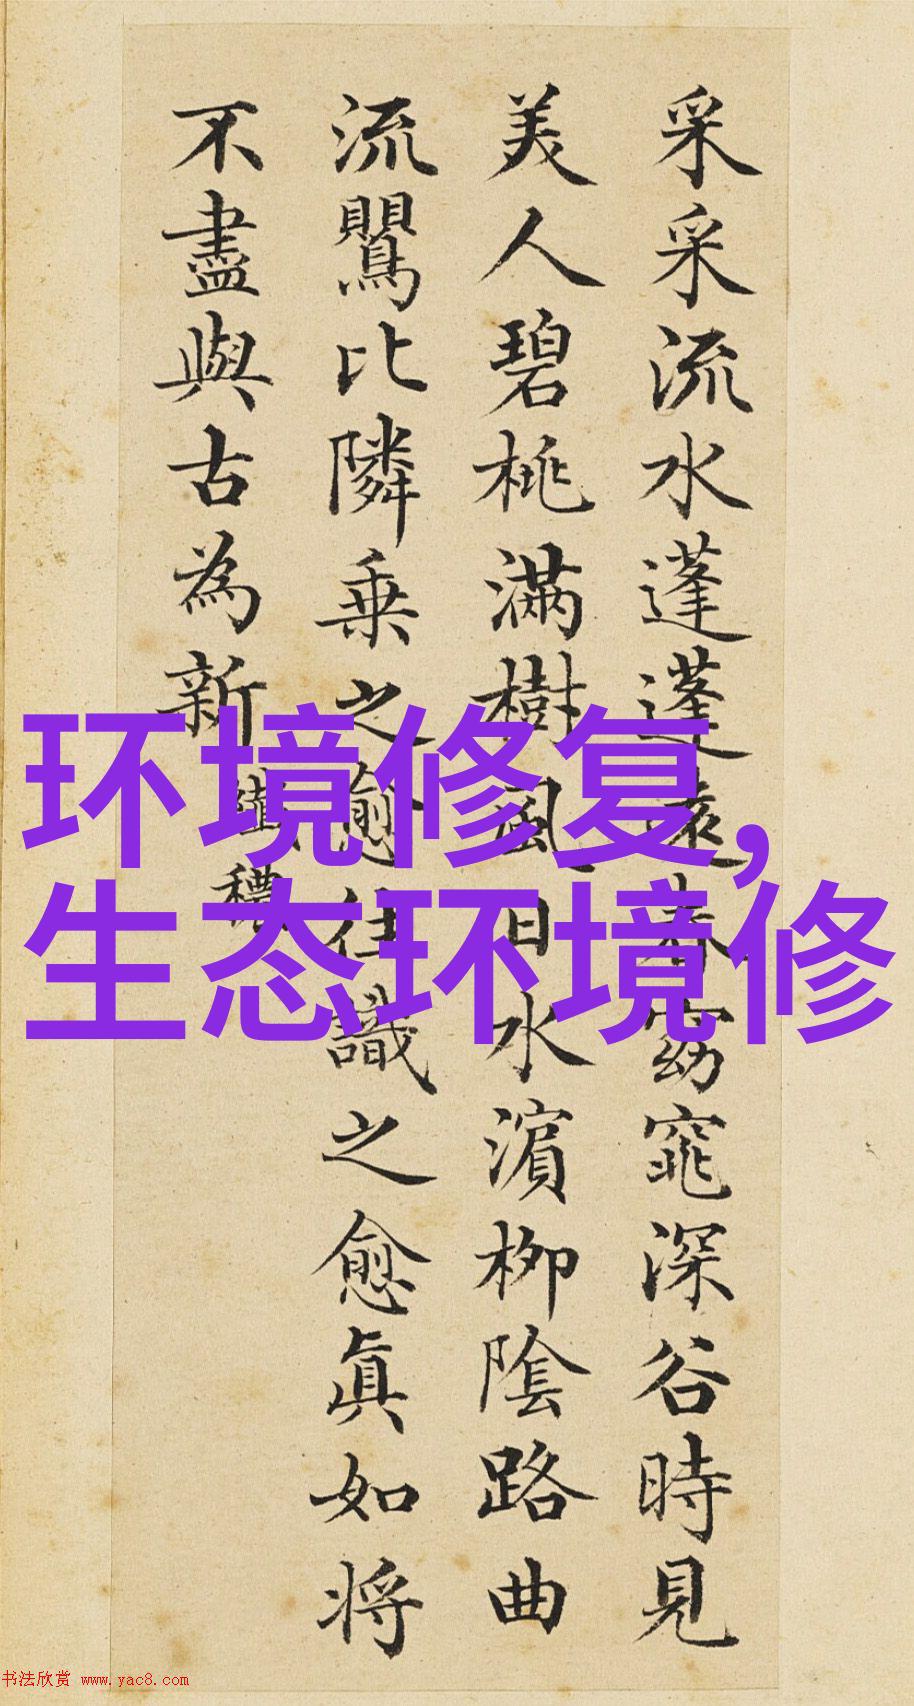 采采流水蓬蓬遠春窈窕深谷時見
美人碧桃滿樹風日水濱柳陰路曲
流鸎比隣乗之愈往識之愈眞如将
不盡與古為新
纖穠
环境修复,
生态环境修
书法欣赏 www.yac8.com